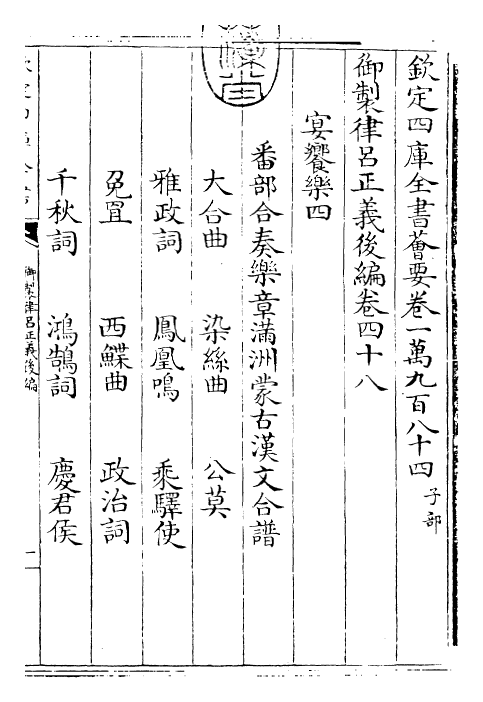 欽定四庫全書薈要卷一萬九百八十四 子部
御製律呂正義後編卷四十八
宴饗樂四
番部合奏樂章滿洲蒙古漢文合譜
大合曲 染絲曲 公莫
雅政詞 鳳凰鳴 乘驛使
兔罝 西鰈曲 政治詞
千秋詞 鴻鵠詞 慶君侯
御製律呂正義後編
一